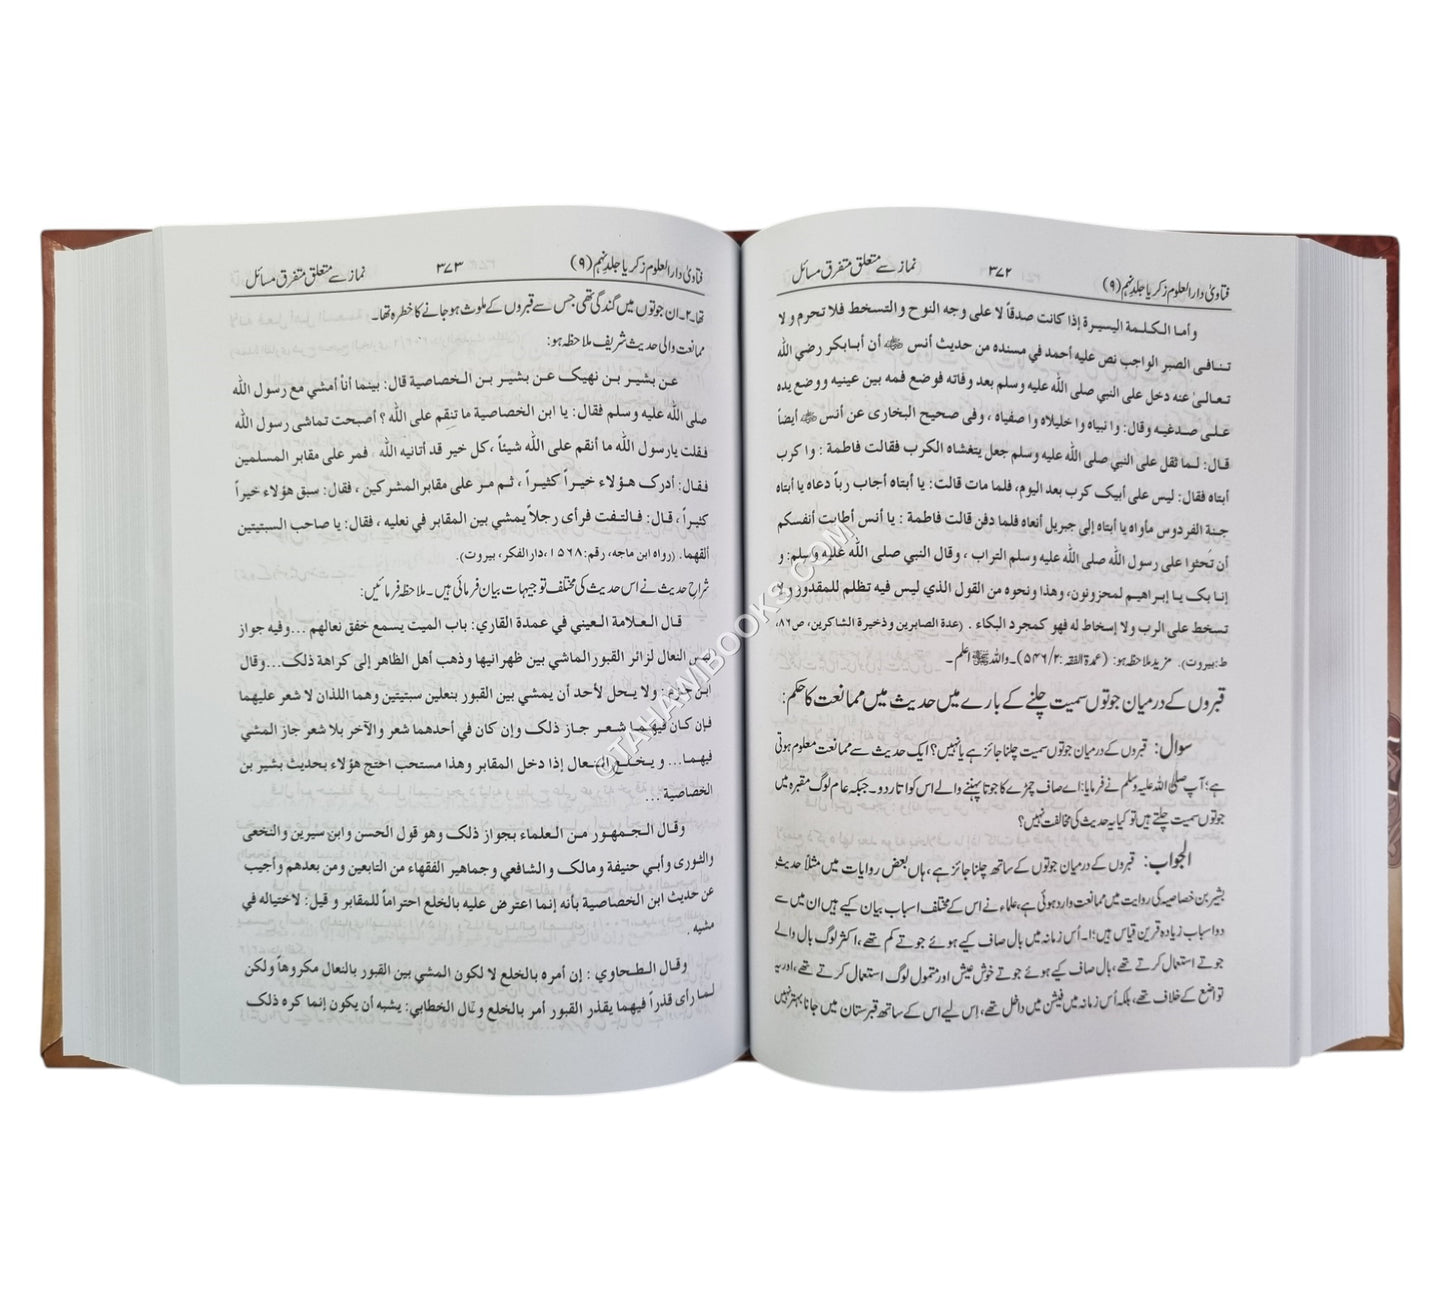 فتاویٰ دارالعلوم زکریا جلدِ نہم (۹)
۳۷۲
نماز سے متعلق متفرق مسائل
وأما الكلمة اليسيرة إذا كانت صدقاً لا على وجه النوح والتسخط فلا تحرم ولا
تنافى الصبر الواجب نص عليه أحمد في مسنده من حديث أنس ﷺ أن أبابكر رضي الله
تعالىٰ عنه دخل على النبي صلى الله عليه وسلم بعد وفاته فوضع فمه بين عينيه ووضع يده
على صدغيه وقال: وا نبياه وا خليلاه وا صفياه ، وفى صحيح البخارى عن أنس ﷺ أيضاً
قال: لما ثقل على النبي صلى الله عليه وسلم جعل يتغشاه الكرب فقالت فاطمة : وا كرب
أبتاه فقال: ليس على أبيک كرب بعد اليوم، فلما مات قالت: يا أبتاه أجاب رباً دعاه يا أبتاه
جنة الفردوس مأواه يا أبتاه إلى جبريل أنعاه فلما دفن قالت فاطمة : يا أنس أطابت أنفسكم
أن تحثوا على رسول الله صلى الله عليه وسلم التراب ، وقال النبي صلى الله عليه وسلم: و
إنا بک يا إبراهيم لمحزونون، وهذا ونحوه من القول الذي ليس فيه تظلم للمقدور ولا
تسخط على الرب ولا إسخاط له فهو كمجرد البكاء . (عدة الصابرين وذخيرة الشاكرين، ص۸۶،
ط:بيروت). مزید ملاحظہ ہو: (عمدۃ الفقہ :۲/۵۴۶)۔ واللہ ﷻ اعلم ۔
قبروں کے درمیان جوتوں سمیت چلنے کے بارے میں حدیث میں ممانعت کا حکم:
سوال: قبروں کے درمیان جوتوں سمیت چلنا جائز ہے یا نہیں؟ ایک حدیث سے ممانعت معلوم ہوتی
ہے؛ آپ صلی اللہ علیہ وسلم نے فرمایا: اے صاف چمڑے کا جوتا پہننے والے اس کو اتار دو۔ جبکہ عام لوگ مقبرہ میں
جوتوں سمیت چلتے ہیں تو کیا یہ حدیث کی مخالفت نہیں؟
الجواب: قبروں کے درمیان جوتوں کے ساتھ چلنا جائز ہے، ہاں بعض روایات میں مثلاً حدیث
بشیر بن خصاصیہ کی روایت میں ممانعت وارد ہوئی ہے، علماء نے اس کے مختلف اسباب بیان کیے ہیں ان میں سے
دو اسباب زیادہ قرین قیاس ہیں؛ ۱۔ اُس زمانہ میں بال صاف کیے ہوئے جوتے کم تھے، اکثر لوگ بال والے
جوتے استعمال کرتے تھے، بال صاف کیے ہوئے جوتے خوش عیش اور متمول لوگ استعمال کرتے تھے، اور یہ
تواضع کے خلاف تھے، بلکہ اُس زمانہ میں فیشن میں داخل تھے، اِس لیے اس کے ساتھ قبرستان میں جانا بہتر نہیں
فتاویٰ دارالعلوم زکریا جلدِ نہم (۹)
۳۷۳
نماز سے متعلق متفرق مسائل
تھا۔ ۲۔ ان جوتوں میں گندگی تھی جس سے قبروں کے ملوث ہو جانے کا خطرہ تھا۔
ممانعت والی حدیث شریف ملاحظہ ہو:
عن بشير بن نهيک عن بشير بن الخصاصية قال: بينما أنا أمشي مع رسول الله
صلى الله عليه وسلم فقال: يا ابن الخصاصية ما تنقم على الله ؟ أصبحت تماشى رسول الله
فقلت يارسول الله ما أنقم على الله شيئاً ، كل خير قد أتانيه الله ، فمر على مقابر المسلمين
فقال: أدرک هؤلاء خيراً كثيراً ، ثم مر على مقابر المشركين ، فقال: سبق هؤلاء خيراً
كثيراً ، قال: فالتفت فرأى رجلاً يمشي بين المقابر في نعليه ، فقال: يا صاحب السبتيتين
ألقهما. (رواه ابن ماجه، رقم: ۱۵۶۸، دارالفكر، بيروت).
شراحِ حدیث نے اس حدیث کی مختلف توجیہات بیان فرمائی ہیں۔ ملاحظہ فرمائیں:
قال العلامة العيني في عمدة القاري: باب الميت يسمع خفق نعالهم ...وفيه جواز
لبس النعال لزائر القبور الماشي بين ظهرانيها وذهب أهل الظاهر إلى كراهة ذلك...وقال
ابن حزم: ولا يحل لأحد أن يمشي بين القبور بنعلين سبتيتين وهما اللذان لا شعر عليهما
فإن كان فيهما شعر جاز ذلک وإن كان في أحدهما شعر والآخر بلا شعر جاز المشي
فيهما... و يخلع النعال إذا دخل المقابر وهذا مستحب احتج هؤلاء بحديث بشير بن
الخصاصية ...
وقال الجمهور من العلماء بجواز ذلک وهو قول الحسن وابن سيرين والنخعى
والثورى وأبي حنيفة ومالک والشافعي وجماهير الفقهاء من التابعين ومن بعدهم وأجيب
عن حديث ابن الخصاصية بأنه إنما اعترض عليه بالخلع احتراماً للمقابر و قيل: لاختياله في
مشيه .
وقال الطحاوي : إن أمره بالخلع لا لكون المشي بين القبور بالنعال مكروهاً ولكن
لما رأى قذراً فيهما يقذر القبور أمر بالخلع وقال الخطابي: يشبه أن يكون إنما كره ذلک
©TAHAMIBOOKS.COM